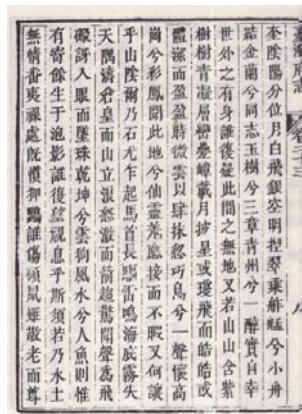 奎陰陽分位月白飛銀空明捏翠乘舴艋兮小舟
結金蘭兮同志玉樹兮三章青州兮一醉實自幸
世外之有身誰復疑此間之無地又若山山含紫
樹樹青凝層巒疊嶂戴月披星或瓊飛而皓皓或
體潔而盈盈時微雲以肆抹忽巧鳥兮一聲懷高
崗兮彩鳳聞此地兮仙靈羌應接而不暇又何讓
乎山陰爾乃石尤乍起馬首長驅雷鳴海底霧失
天隅濤若皇而山立浪怒激而前趨驚聞聲舊飛
礙訝入眼而墜珠乾坤兮雲狗風水兮人魚則惟
有寄餘生于泡影誰復望視息乎斯須若乃水土
無情番夷雜處既慣押鷗誰傷傾鼠雖散老而尊